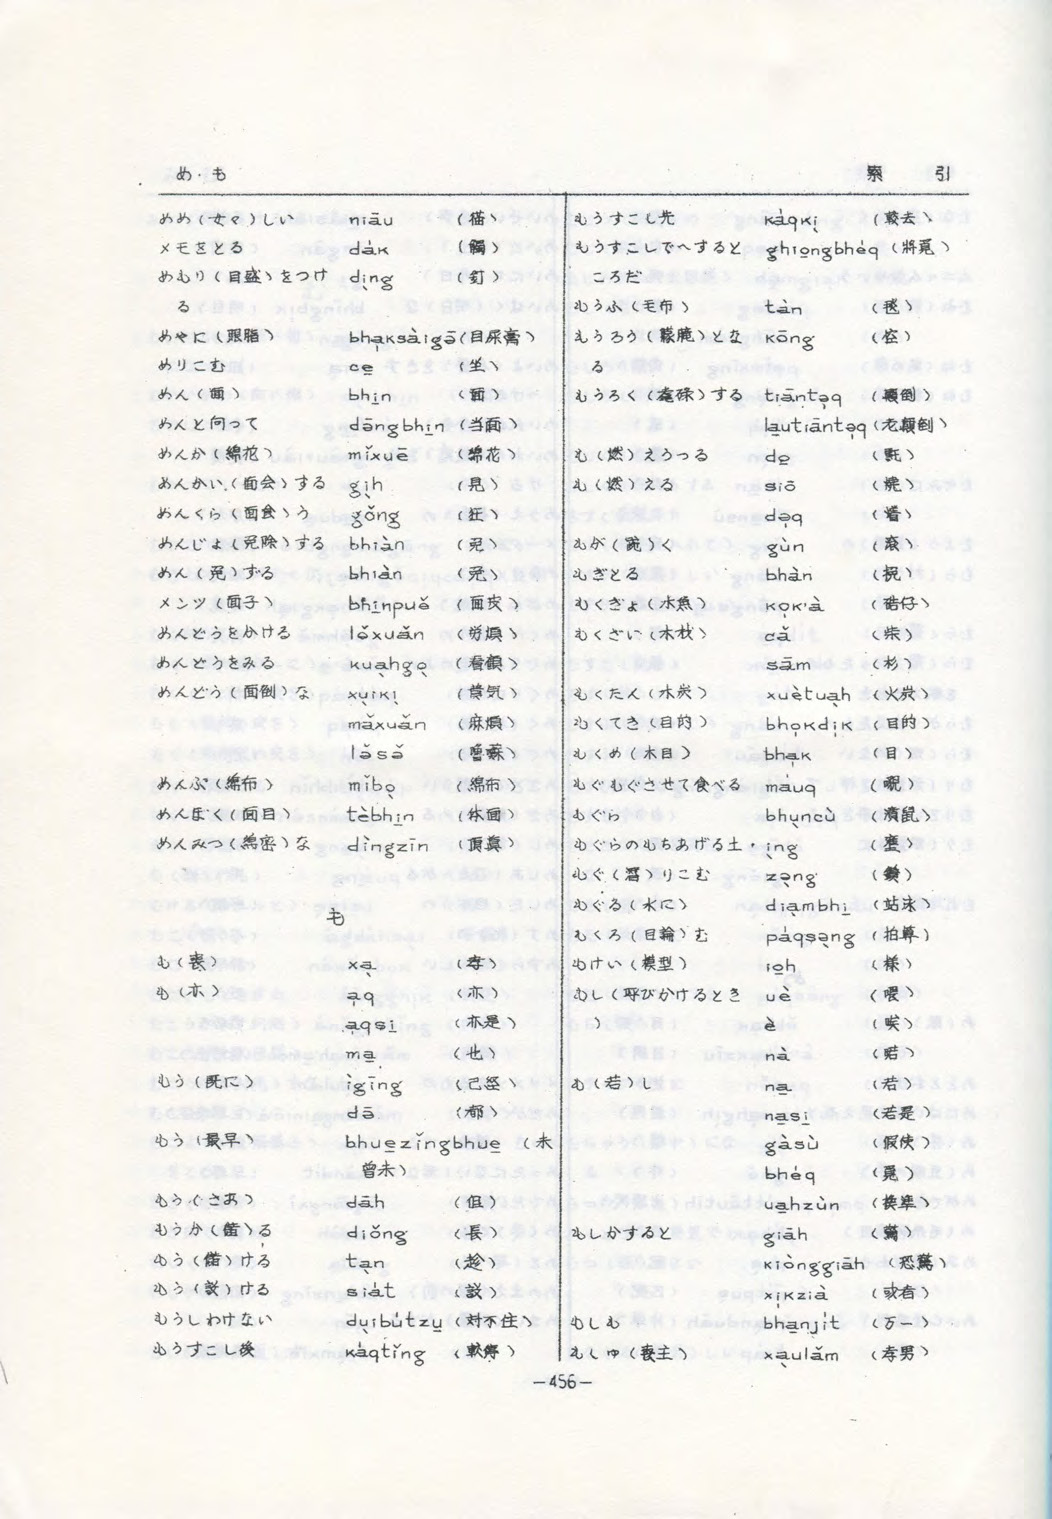 め・も 索引
めめ(女々)しい niāu (猫)
メモをとる dák (髑)
めもり(目盛)をつけ dìng (釘)
る
めやに(眼脂) bhạksàigō (目屎膏)
めりこむ ce̲ (坐)
めん(面) bhi̲n (面)
めんと向って dōngbhi̲n (当面)
めんか(綿花) mǐxuē (綿花)
めんかい(面会)する gịh (見)
めんくら(面食)う gǒng (狂)
めんじょ(免除)する bhiàn (免)
めん(免)ずる bhiàn (免)
メンツ(面子) bhi̲npuě (面皮)
めんどうをかける lǒxuǎn (労煩)
めんどうをみる kuạhgọ (看顧)
めんどう(面倒)な xụikị (費気)
mǎxuǎn (麻煩)
lǒsǒ (嚕蘇)
めんぷ(綿布) mǐbọ (綿布)
めんぼく(面目) tèbhi̲n (体面)
めんみつ(綿密)な dǐngzīn (頂真)
も
も(喪) xạ (孝)
も(亦) ạq (亦)
ạqsi̲ (亦是)
ma̲ (也)
もう(既に) ìgīng (己経)
dō (都)
もう(最早) bhue̲zǐngbhue̲ (未
曾未)
もうぐさあ) dāh (但)
もうか(儲)る diǒng (長)
もう(儲)ける tạn (趁)
もう(設)ける siát (設)
もうしわけない dụibútzu̲ (対不住)
もうすこし後 kàqtǐng (較停)
もうすこし先 kàqkị (較去)
もうすこしで〜すると ghiongbhéq (將覓)
ころだ
もうふ(毛布) tàn (毯)
もうろう(朦朧)とな kōng (倥)
る
もうろく(耄碌)する tiāntəq (顚倒)
la̲utiāntəq (老顚倒)
も(燃)えうつる do̲ (𣁳)
も(燃)える siō (焼)
dəq (着)
もが(踠)く gùn (滾)
もぎとる bhàn (挽)
もくぎょ(木魚) kọk'à (硞仔)
もくざい(木材) cǎ (柴)
sām (杉)
もくたん(木炭) xuètuạh (火炭)
もくてき(目的) bhọkdịk (目的)
もくめ(木目) bhạk (目)
もぐもぐさせて食べる máuq
もぐら bhu̲ncù (濆鼠)
もぐらのもちあげる土・ ịng (壅)
もぐ(潜)りこむ zəng (鑽)
もぐる(水に) diạmbhi̲ (站沬)
もくろ(目論)む páqsəng (拍算)
もけい(模型) io̲h (様)
もし(呼びかけるとき uè (喂)
) è (唉)
nà
も(若)し na̲ (若)
na̲si̲ (若是)
gàsù (假使)
bhéq (覓)
ua̲hzùn (換準)
もしかすると giāh (驚)
kiònggiāh (恐驚)
xịkzià (或者)
もしも bha̲njịt (万一)
もしゅ(喪主) xạulǎm (孝男)
—456—